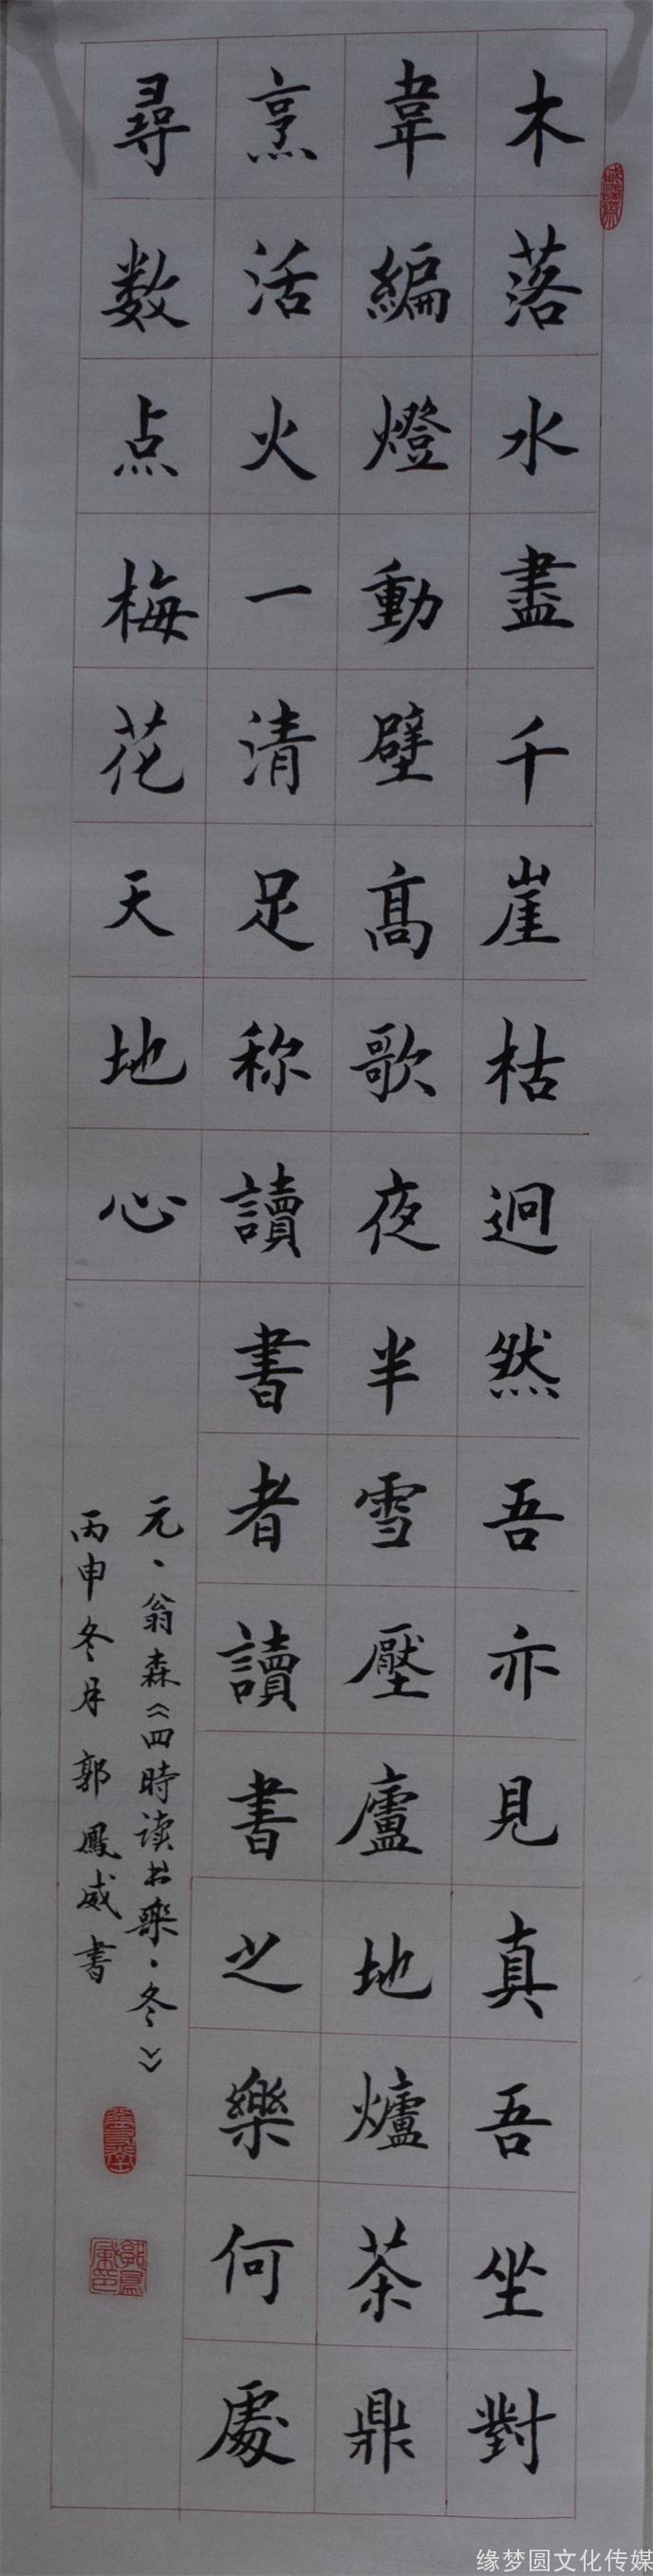 木落水盡千崖枯迥然吾亦見真吾坐對
韋編燈動壁高歌夜半雪壓廬地爐茶鼎
烹活火一清足称讀書者讀書之樂何處
尋数点梅花天地心
元、翁森《四時读书樂·冬》
丙申冬月郭鳳威書
缘梦圆文化传媒